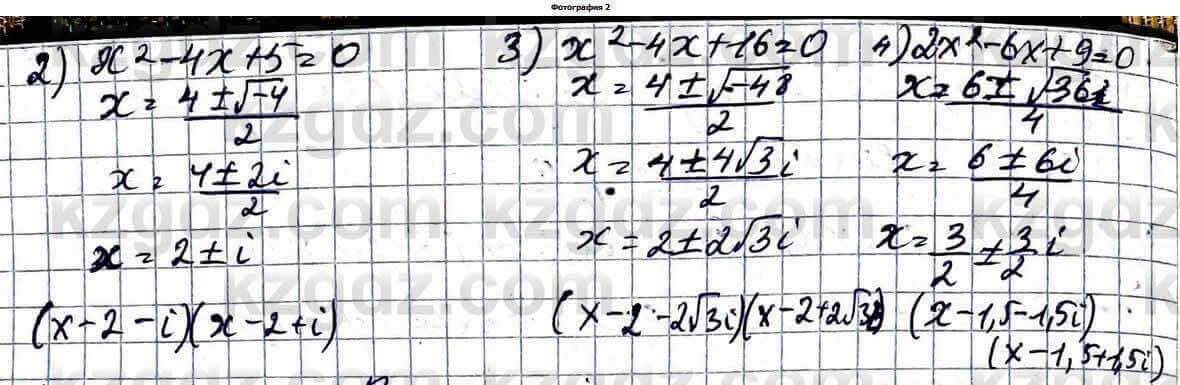 Фотография 2
2) x² - 4x + 5 = 0
x = (4 ± √-4) / 2
x = (4 ± 2i) / 2
x = 2 ± i
(x - 2 - i)(x - 2 + i)
3) x² - 4x + 16 = 0
x = (4 ± √-48) / 2
x = (4 ± 4√3 i) / 2
x = 2 ± 2√3 i
(x - 2 - 2√3i)(x - 2 + 2√3i)
4) 2x² - 6x + 9 = 0
x = (6 ± √-36) / 4
x = (6 ± 6i) / 4
x = 3/2 ± 3/2 i
(x - 1,5 - 1,5i)
(x - 1,5 + 1,5i)
kzgdz.com